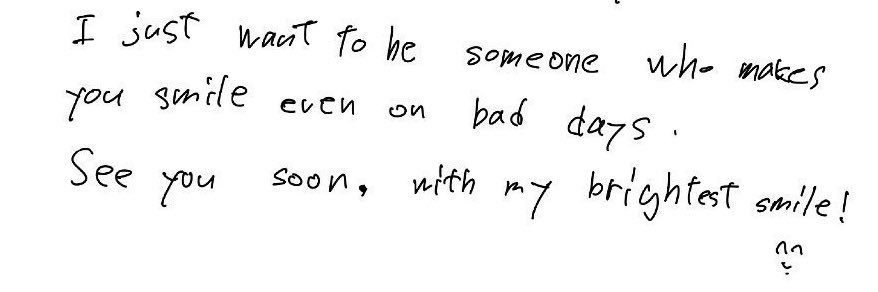 I just want to be someone who makes
you smile even on bad days.
See you soon, with my brightest smile!